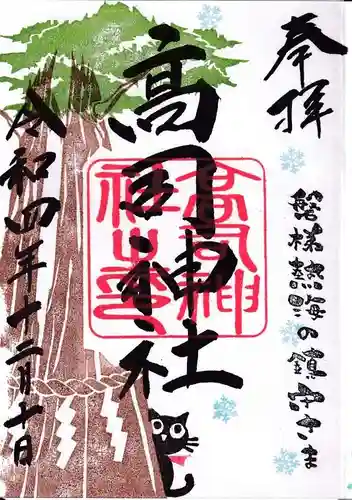 奉拝
磐梯熱海の鎮守さま
高司神社
高司神
社之印
令和四年十二月十日